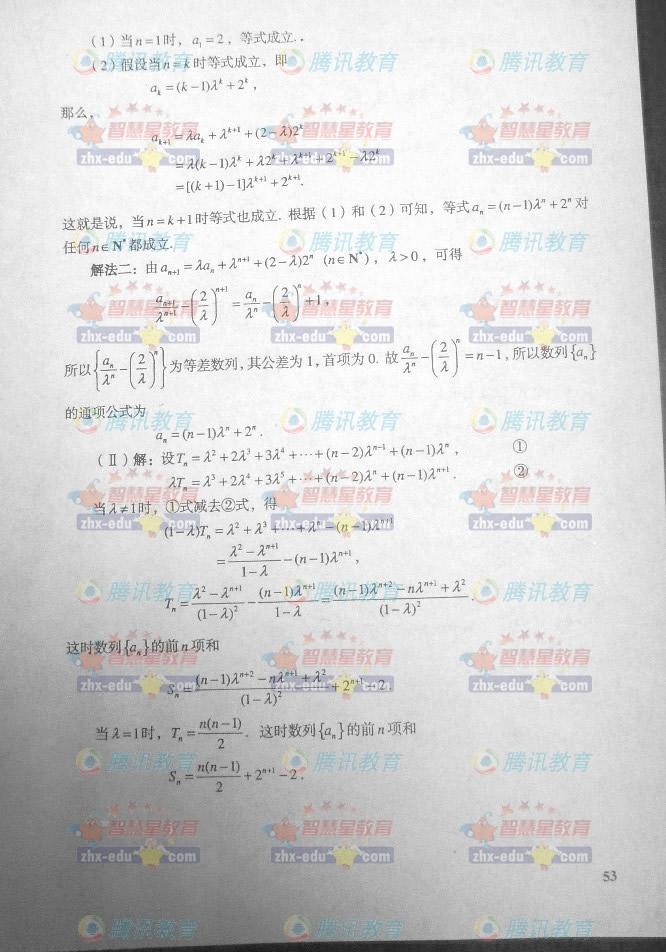 (1)当n=1时，a₁=2，等式成立.
(2)假设当n=k时等式成立，即
aₖ=(k-1)λᵏ+2ᵏ，
那么，
aₖ₊₁=λaₖ+λᵏ⁺¹+(2-λ)2ᵏ
=λ(k-1)λᵏ+λ2ᵏ+λᵏ⁺¹+2ᵏ⁺¹-λ2ᵏ
=[(k+1)-1]λᵏ⁺¹+2ᵏ⁺¹.
这就是说，当n=k+1时等式也成立. 根据（1）和（2）可知，等式aₙ=(n-1)λⁿ+2ⁿ对
任何n∈N*都成立.
解法二：由aₙ₊₁=λaₙ+λⁿ⁺¹+(2-λ)2ⁿ (n∈N*)，λ>0，可得
aₙ₊₁/λⁿ⁺¹-(2/λ)ⁿ⁺¹=aₙ/λⁿ-(2/λ)ⁿ+1，
所以{aₙ/λⁿ-(2/λ)ⁿ}为等差数列，其公差为1，首项为0. 故aₙ/λⁿ-(2/λ)ⁿ=n-1，所以数列{aₙ}
的通项公式为
aₙ=(n-1)λⁿ+2ⁿ.
(Ⅱ)解：设Tₙ=λ²+2λ³+3λ⁴+⋯+(n-2)λⁿ⁻¹+(n-1)λⁿ， ①
λTₙ=λ³+2λ⁴+3λ⁵+⋯+(n-2)λⁿ+(n-1)λⁿ⁺¹. ②
当λ≠1时，①式减去②式，得
(1-λ)Tₙ=λ²+λ³+⋯+λⁿ-(n-1)λⁿ⁺¹
=(λ²-λⁿ⁺¹)/(1-λ)-(n-1)λⁿ⁺¹，
Tₙ=(λ²-λⁿ⁺¹)/(1-λ)²-(n-1)λⁿ⁺¹/(1-λ)=((n-1)λⁿ⁺²-nλⁿ⁺¹+λ²)/(1-λ)².
这时数列{aₙ}的前n项和
Sₙ=((n-1)λⁿ⁺²-nλⁿ⁺¹+λ²)/(1-λ)²+2ⁿ⁺¹-2.
当λ=1时，Tₙ=n(n-1)/2. 这时数列{aₙ}的前n项和
Sₙ=n(n-1)/2+2ⁿ⁺¹-2.
53
腾讯教育
智慧星教育
zhx-edu com